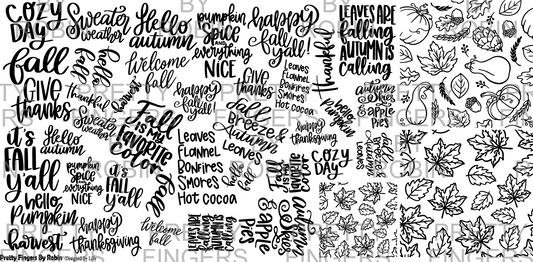 COZY
DAY
Sweater
weather
Hello
autumn
pumpkin
SPICE
and
everything
NICE
happy
fall
y'all!
LEAVES ARE
falling
AUTUMN IS
calling
fall
hello
fall
welcome
fall
thankful
GIVE
THANKS
thankful
Sweater
weather
harvest
happy
fall
y'all!
GIVE
THANKS
LEAVES
FLANNEL
BONFIRES
SMORES
HOT COCOA
hello
pumpkin
autumn
Skies
& apple
Pies
Fall
IS MY
FAVORITE
Color
Fall
Breeze &
Autumn
Leaves
happy
thanksgiving
it's
FALL
y'all
Hello
autumn
pumpkin
SPICE
and
everything
NICE
it's
FALL
y'all
LEAVES
FLANNEL
BONFIRES
SMORES
HOT COCOA
hello
fall
Fall
IS MY
FAVORITE
Color
COZY
DAY
Fall
Breeze &
Autumn
Leaves
hello
Pumpkin
harvest
happy
thanksgiving
welcome
fall
LEAVES ARE
falling
AUTUMN IS
calling
autumn
Skies
& apple
Pies
autumn
Skies
Pretty Fingers By Robin
Designed By Lily
PRETTY
FINGERS
BY
ROBIN